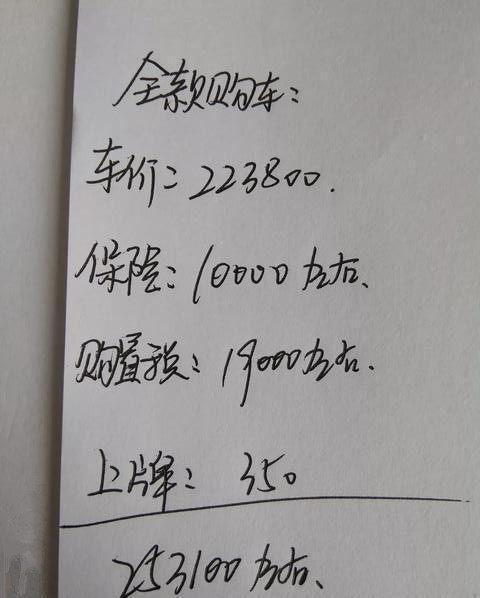 全款购车：
车价：223800.
保险：10000左右、
购置税：19000左右.
上牌：350
253100左右、